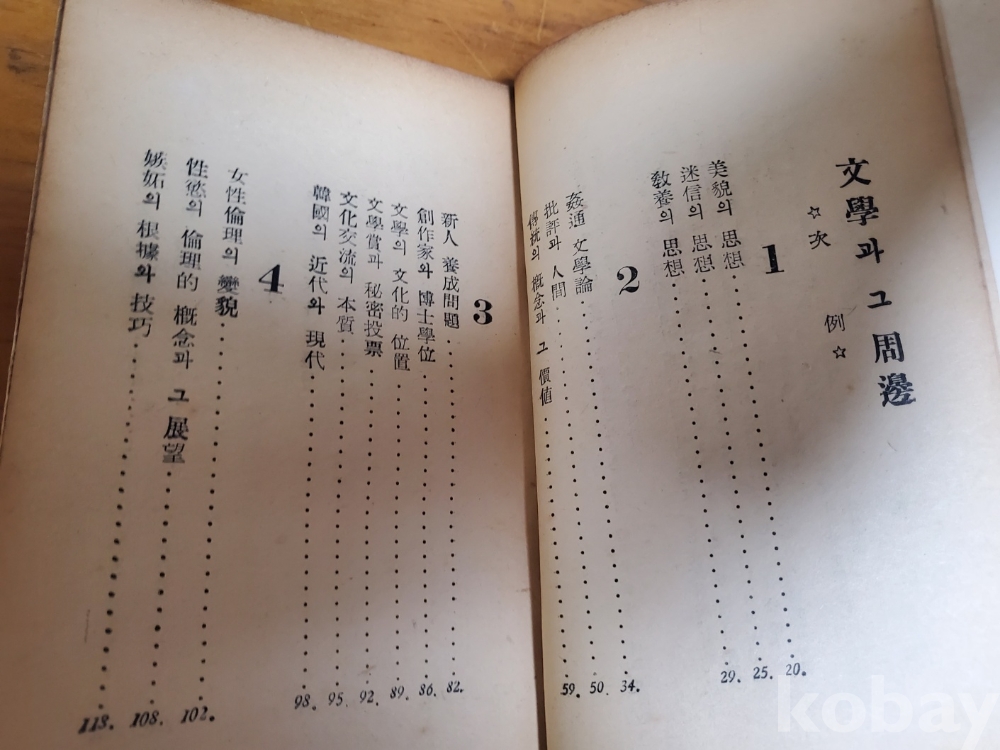 文學과 그 周邊
☆次 例☆
1
美貌의 思想 20.
迷信의 思想 25.
敎養의 思想 29.
2
姦通 文學論 34.
批評과 人間 50.
傳統의 槪念과 그 價値 59.
3
新人 養成問題 82.
創作家와 博士學位 86.
文學의 文化的 位置 89.
文學賞과 秘密投票 92.
文化交流의 本質 95.
韓國의 近代와 現代 98.
4
女性倫理의 變貌 102.
性慾의 倫理的 槪念과 그 展望 108.
嫉妬의 根據와 技巧 118.
kobay